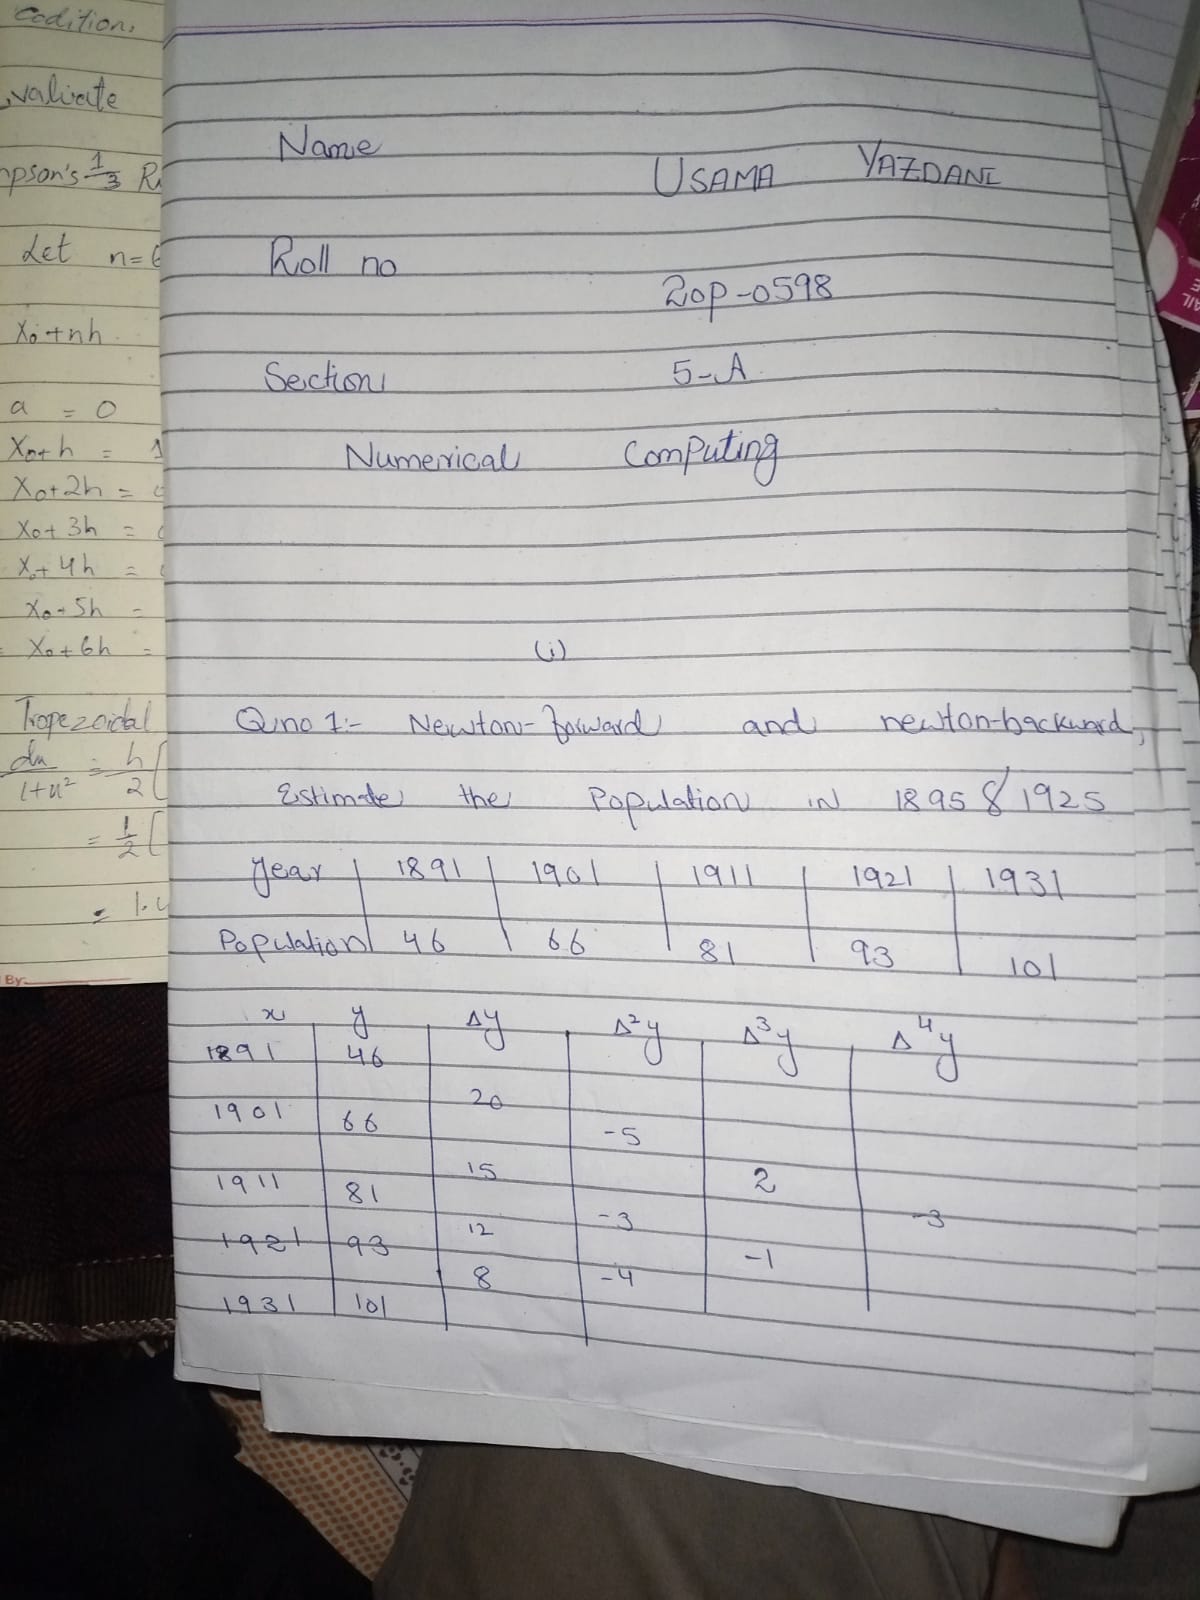 Codition,
valuate
mpson's 1/3 R
Let n=6
X₀+nh
a = 0
X₀+h = 1
X₀+2h =
X₀+3h =
X₀+4h =
X₀+5h =
X₀+6h =
Trapezoidal
du/1+u² = h/2 [
= 1/2 [
= 1.4
By
Name USAMA YAZDANI
Roll no 20p-0598
Section 5-A
Numerical Computing
(i)
Q.no 1:- Newton-forward and newton-backward,
Estimate the Population in 1895 & 1925
Year 1891 1901 1911 1921 1931
Population 46 66 81 93 101
x y Δy Δ²y Δ³y Δ⁴y
1891 46
20
1901 66
-5
15 2
1911 81
-3 -3
12
1921 93 -1
8 -4
1931 101
AIL